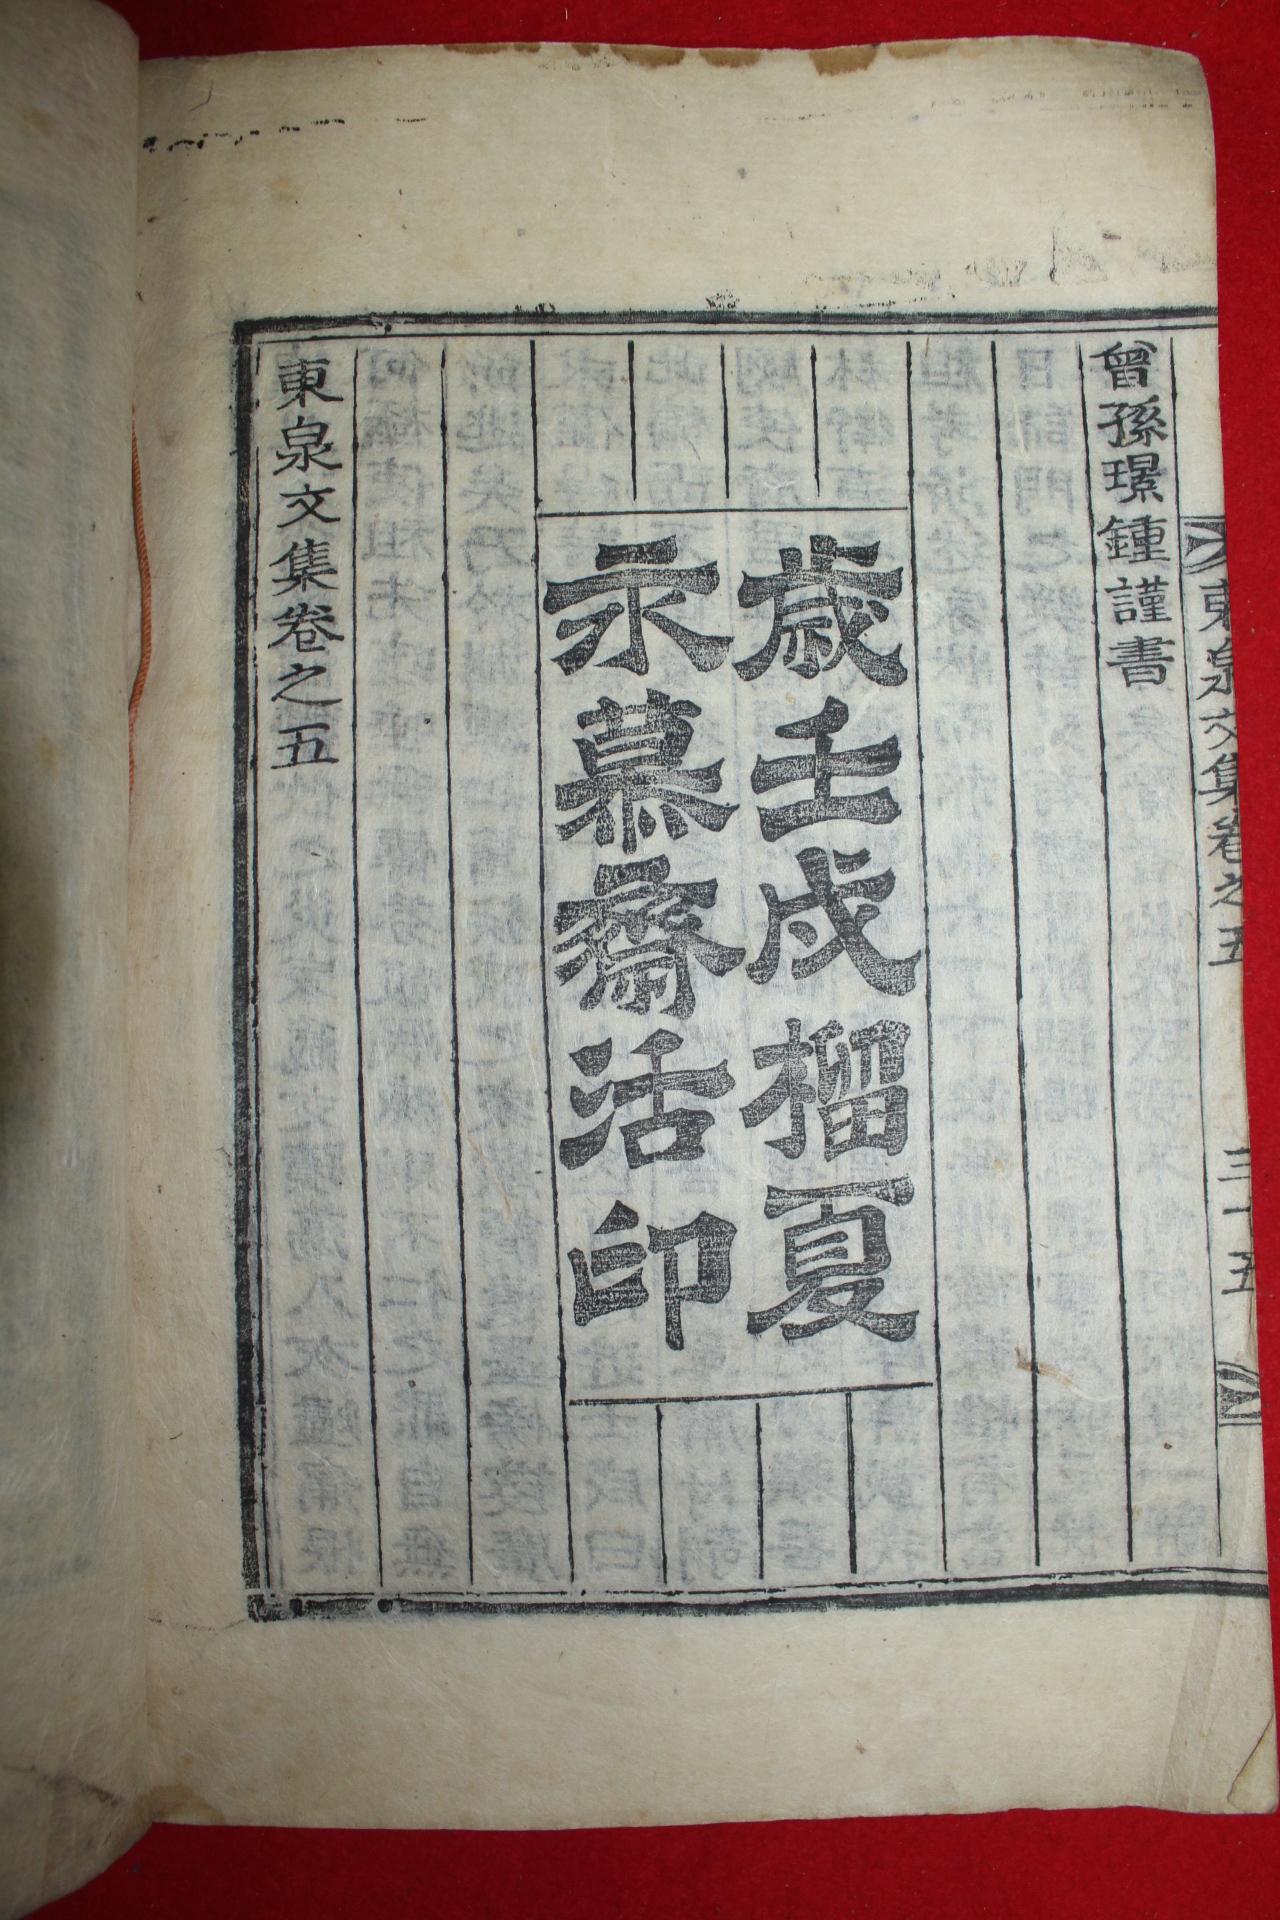 東泉文集卷之五
三十五
曾孫璟鍾謹書
歲壬戌榴夏
永慕齋活印
東泉文集卷之五